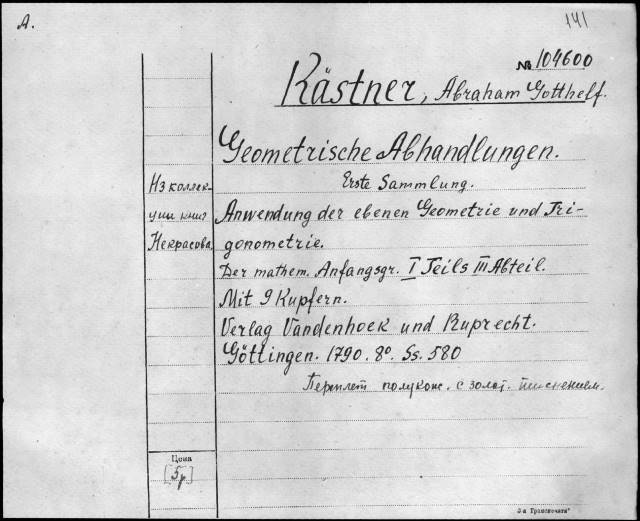 A.
141
№ 104600
Kästner, Abraham Gotthelf.
Geometrische Abhandlungen.
Erste Sammlung.
Из коллек-
ции книг
Некрасова.
Anwendung der ebenen Geometrie und Tri-
gonometrie.
Der mathem. Anfangsgr. I Teils III Abteil.
Mit 9 Kupfern.
Verlag Vandenhoek und Ruprecht.
Göttingen. 1790. 8º. Ss. 580
Переплет полукож. с золот. тиснением.
Цена
[5р]
3-я Транспечати"